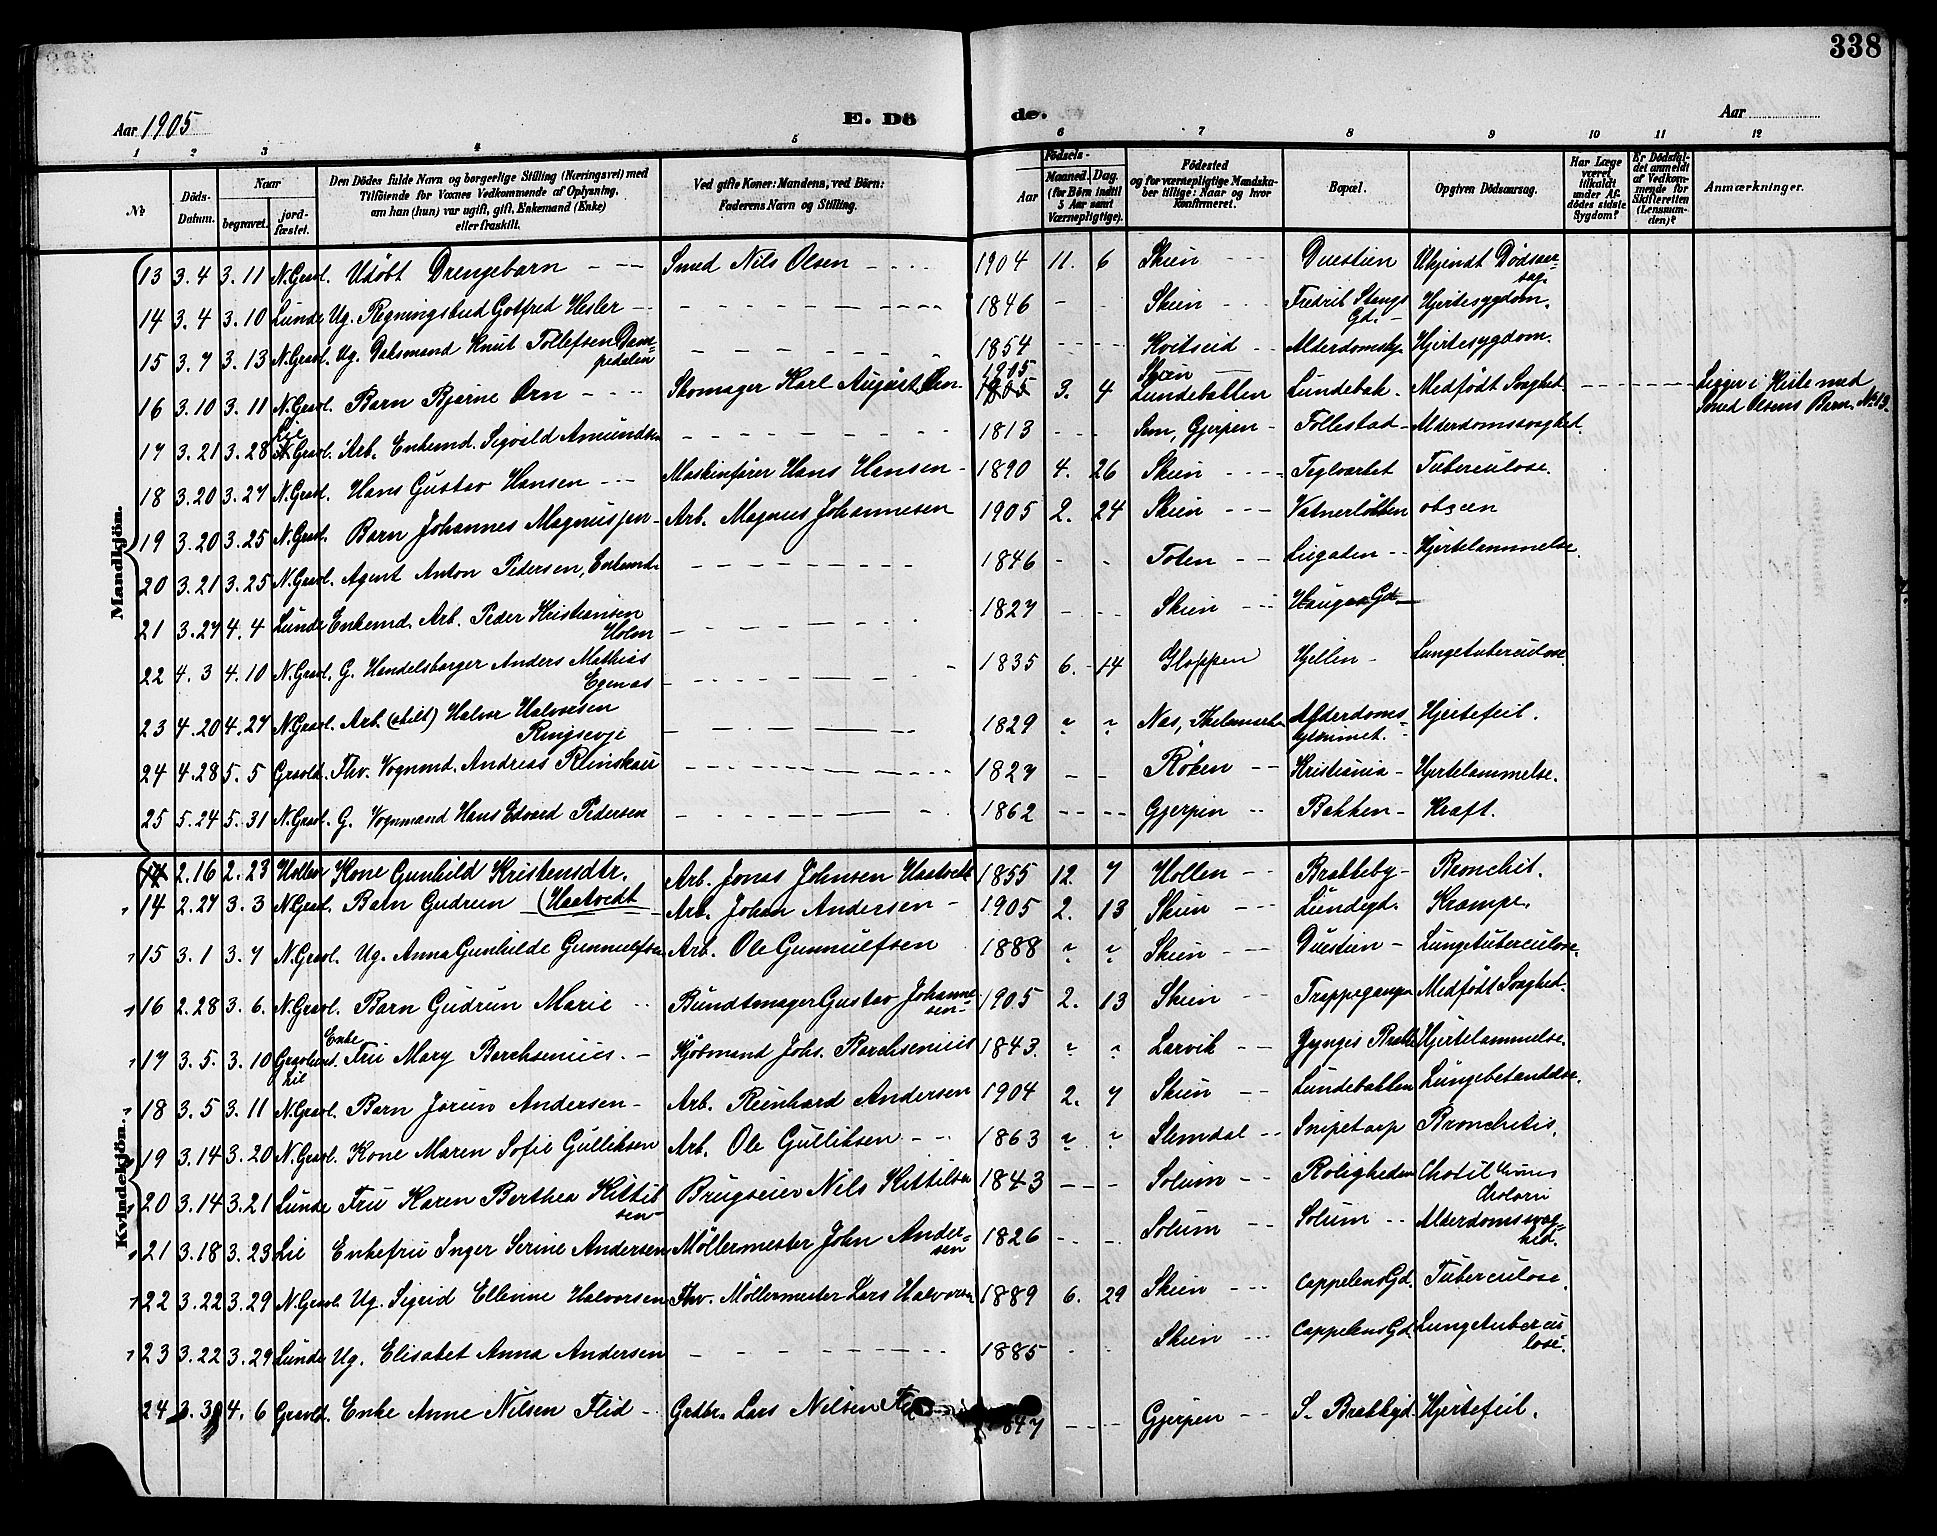 338
Aar 1905
E. Dö
de.
Aar
1 2 3 4 5 6 7 8 9 10 11 12
№
Döds-Datum.
Naar
begravet.
jord-fæstet.
Den Dödes fulde Navn og borgerlige Stilling (Næringsvei) med
Tilföiende for Voxnes Vedkommende af Oplysning,
om han (hun) var ugift, gift, Enkemand (Enke)
eller fraskilt.
Ved gifte Koner: Mandens, ved Börn:
Faderens Navn og Stilling.
Födsels-
Aar
Maaned. Dag.
(for Börn indtil
5 Aar samt
Værnepligtige).
Födested
og for værnepligtige Mandska-
ber tillige: Naar og hvor
konfirmeret.
Bopæl.
Opgiven Dödsaarsag.
Har Læge
været
tilkaldt
under Af-
dödes sidste
Sygdom?
Er Dödsfal-
det anmeldt
af Vedkom-
mende for
Skifteretten
(Lensman-
den)?
Anmærkninger.
Mandkjön.
13 3.4 3.11 N.Gravl. Udöbt Drengebarn - -- Smed Nils Olsen - - - - 1904 11. 6 Skien - - - Duestien Ukjendt Dödsaar-
sag.
14 3.4 3.10 Lunde Ug. Regningsbud Gotfred Hesler - - 1846 - - Skien - - - Fredrik Stangs Gd. - Hjertesygdom.
15 3.7 3.13 N.Gravl. Ug. Dagsmand Knut Tollefsen Dam-
pedalen 1854 - - - - Kvitseid - - Alderdomshj. Hjertesygdom.
16 3.10 3.11 N.Gravl. Barn Bjarne Örn - - - - Skomager Karl August Örn. 1905 3. 4 Skien Lundebakken Lundebak. - Medfödt Svaghed. - - - - - - Ligger i Kiste med
Smed Olsens Barn. №13.
17 3.21 3.28 Lie Arb. Enkemd. Sigvald Amundsen 1813 - - - Sem, Gjerpen - Follestad - Alderdomssvaghed.
18 3.20 3.27 N.Gravl. Hans Gustav Hansen - - - Maskinförer Hans Hansen - 1890 4. 26 Skien - - - - Teglværket Tuberculose.
19 3.20 3.25 N.Gravl. Barn Johannes Magnussen - Arb. Magnus Johannesen 1905 2. 24 Skien - - -
20 3.21 3.25 N.Gravl. Agent Anton Pedersen, Enkemd. 1846 - - Toten - - Liegaten - - Hjertelammelse.
21 3.27 4.4 Lunde Enkemd. Arb. Peder Kristiansen
Holm 1827 - - - Skien - - -
22 4.3 4.10 N.Gravl. G. Handelsborger Anders Mathias
Egenæs 1835 6. - 14 Gloppen Hjellen - Lungetuberculose.
23 4.20 4.27 N.Gravl. Arb. (skilt) Halvor Halvorsen
Ringsevje 1829 " " Næs, Thelemarken Alderdoms-
hjemmet. Hjertefeil.
24 4.28 5.5 Gravl. Fhv. Vognmd. Andreas Reinskau 1827 - - Röken - - Kristiania - Hjertelammelse.
25 5.24 5.31 N.Gravl. G. Vognmand Hans Edvard Pedersen 1862 - - - - Gjerpen - - Bakken - Kræft.
Kvindekjön.
2.16 2.23 Hollen Kone Gunhild Kristensdtr.
(Haatvedt Arb. Jonas Johnsen Haatvedt 1855 12. 7 Hollen - - Bratteby - Bronchit.
14 2.27 3.3 N.Gravl. Barn Gudrun - Arb. Johan Andersen - 1905 2. 13 Skien - - - Lundegd. Krampe.
15 3.1 3.7 N.Gravl. Ug. Anna Gunhilde Gunnulfsen Arb. Ole Gunnulfsen 1888 " " Skien - - - Duestien - Lungetuberculose.
16 2.28 3.6. N.Gravl. Barn Gudrun Marie - - Bundtmager Gustav Johanne-
sen - 1905 2. 13 Skien - - Trappegangen Medfödt Svaghed.
17 3.5. 3.10 Enke Fru Mary Borchsenius. - Kjöbmand Johs. Borchsenius 1843. " " Larvik - - Hjertelammelse.
18 3.5 3.11 Lie N.Gravl. Barn Jorun Andersen - Arb. Reinhard Andersen 1904 2. 7 Skien - - Lundebakken Lungebetændelse.
19 3.14 3.20 N.Gravl. Kone Maren Sofie Gulliksen Arb. Ole Gulliksen - - - 1863 " " Slemdal - - Snipetorp Bronchitis.
20 3.14 3.21 Lunde Fru Karen Berthea Kittil-
sen - Brugseier Nils Kittilsen 1843 - - - Solum - - Roligheden
21 3.18 3.23 Lie Enkefru Inger Serine Andersen Möllermester John Ander-
sen 1826 - - - Solum - - Solum - - Alderdomssvag-
hed.
22 3.22 3.29 N.Gravl. Ug. Sigrid Ellevine Halvorsen Fhv. Möllermester Lars Halvorsen 1889 6. 29 Skien - - - Cappelens Gd. Tuberculose.
23 3.22 3.29 Lunde Ug. Elisabet Anna Andersen 1885 - - Skien - - - Cappelens Gd. Lungetubercu-
lose.
24 3. 4.6 Gravl. Enke Anne Nilsen Flid - Grdbr. Lars Nilsen 1847 - - - Gjerpen - - S. Brækkyd Hjertefeil.